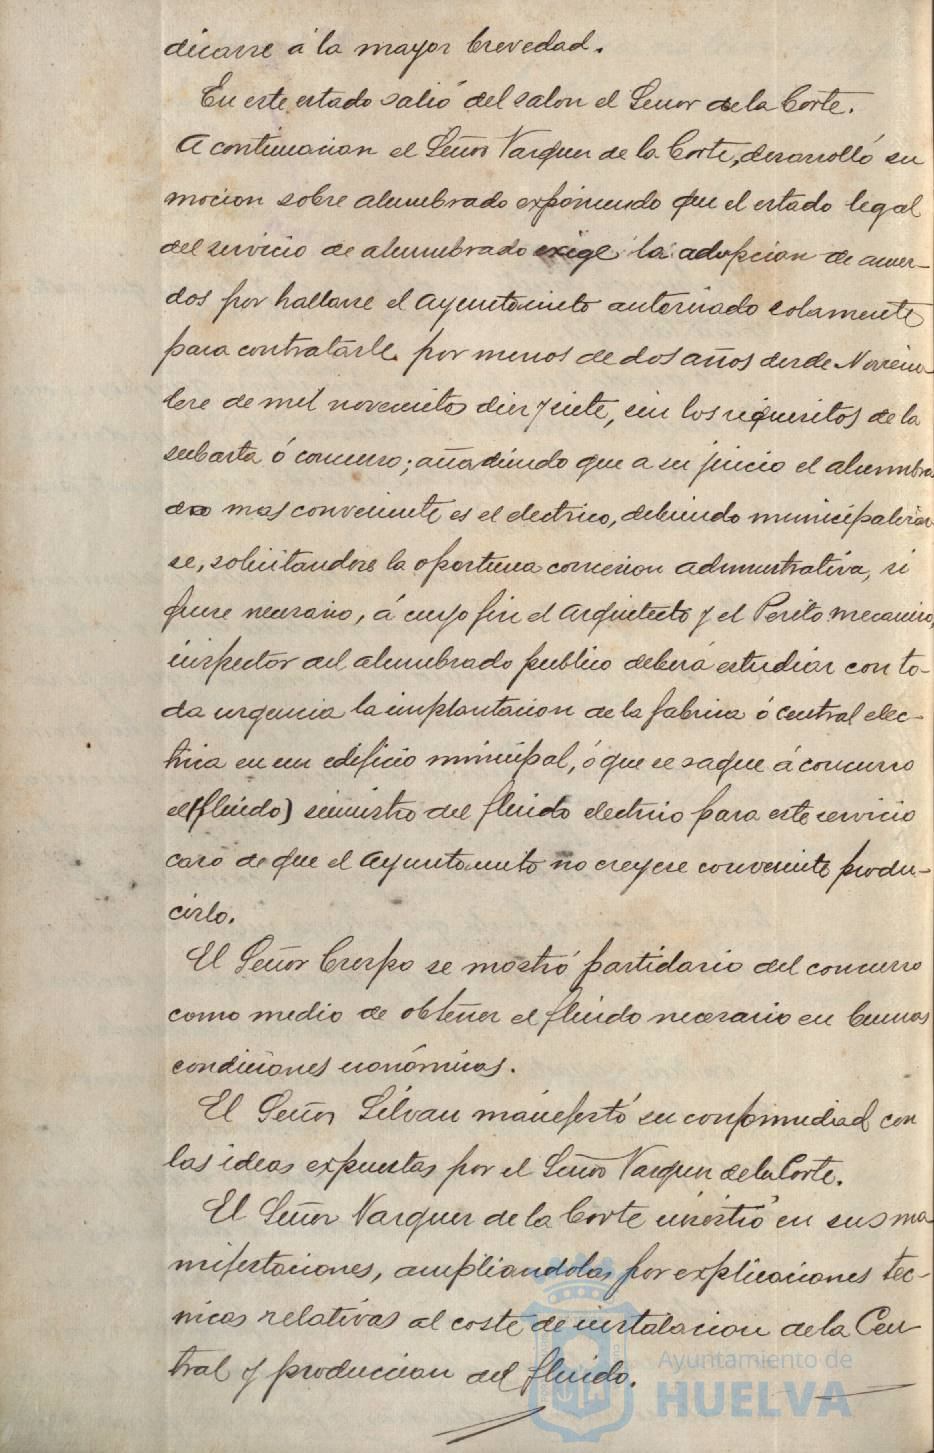 dicarse á la mayor brevedad.
En este estado salió del salon el Señor de la Corte.
A continuacion el Señor Vazquez de la Corte, desarrolló su
mocion sobre alumbrado exponiendo que el estado legal
del servicio de alumbrado exige la adopcion de acuer-
dos por hallarse el Ayuntamiento autorizado solamente
para contratarle por menos de dos años desde Noviem-
bre de mil novecientos diez y siete, sin los requisitos de la
subasta ó concurso; añadiendo que a su juicio el alumbra
do mas conveniente es el electrico, debiendo municipalizar
se, solicitandose la oportuna concesion administrativa, si
fuese necesario, á cuyo fin el Arquitecto y el Perito mecanico,
inspector del alumbrado publico deberá estudiar con to-
da urgencia la implantacion de la fabrica ó central elec-
trica en un edificio municipal, ó que se saque á concurso
el (fluido) suministro del fluido electrico para este servicio
caso de que el Ayuntamiento no creyese conveniente produ-
cirlo.
El Señor Crespo se mostró partidario del concurso
como medio de obtener el fluido necesario en buenas
condiciones económicas.
El Señor Silvan manifestó su conformidad con
las ideas expuestas por el Señor Vazquez de la Corte.
El Señor Vazquez de la Corte insistió en sus ma
nifestaciones, ampliandolas por explicaciones téc-
nicas relativas al coste de instalacion de la Cen
tral y produccion del fluido.
Ayuntamiento de
HUELVA